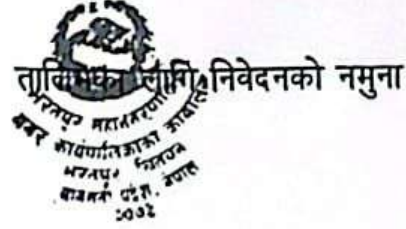 तालिमका लागि निवेदनको नमुना
भरतपुर महानगरपालिका
नगर कार्यपालिकाको कार्यालय
भरतपुर, चितवन
बागमती प्रदेश, नेपाल
२०७३